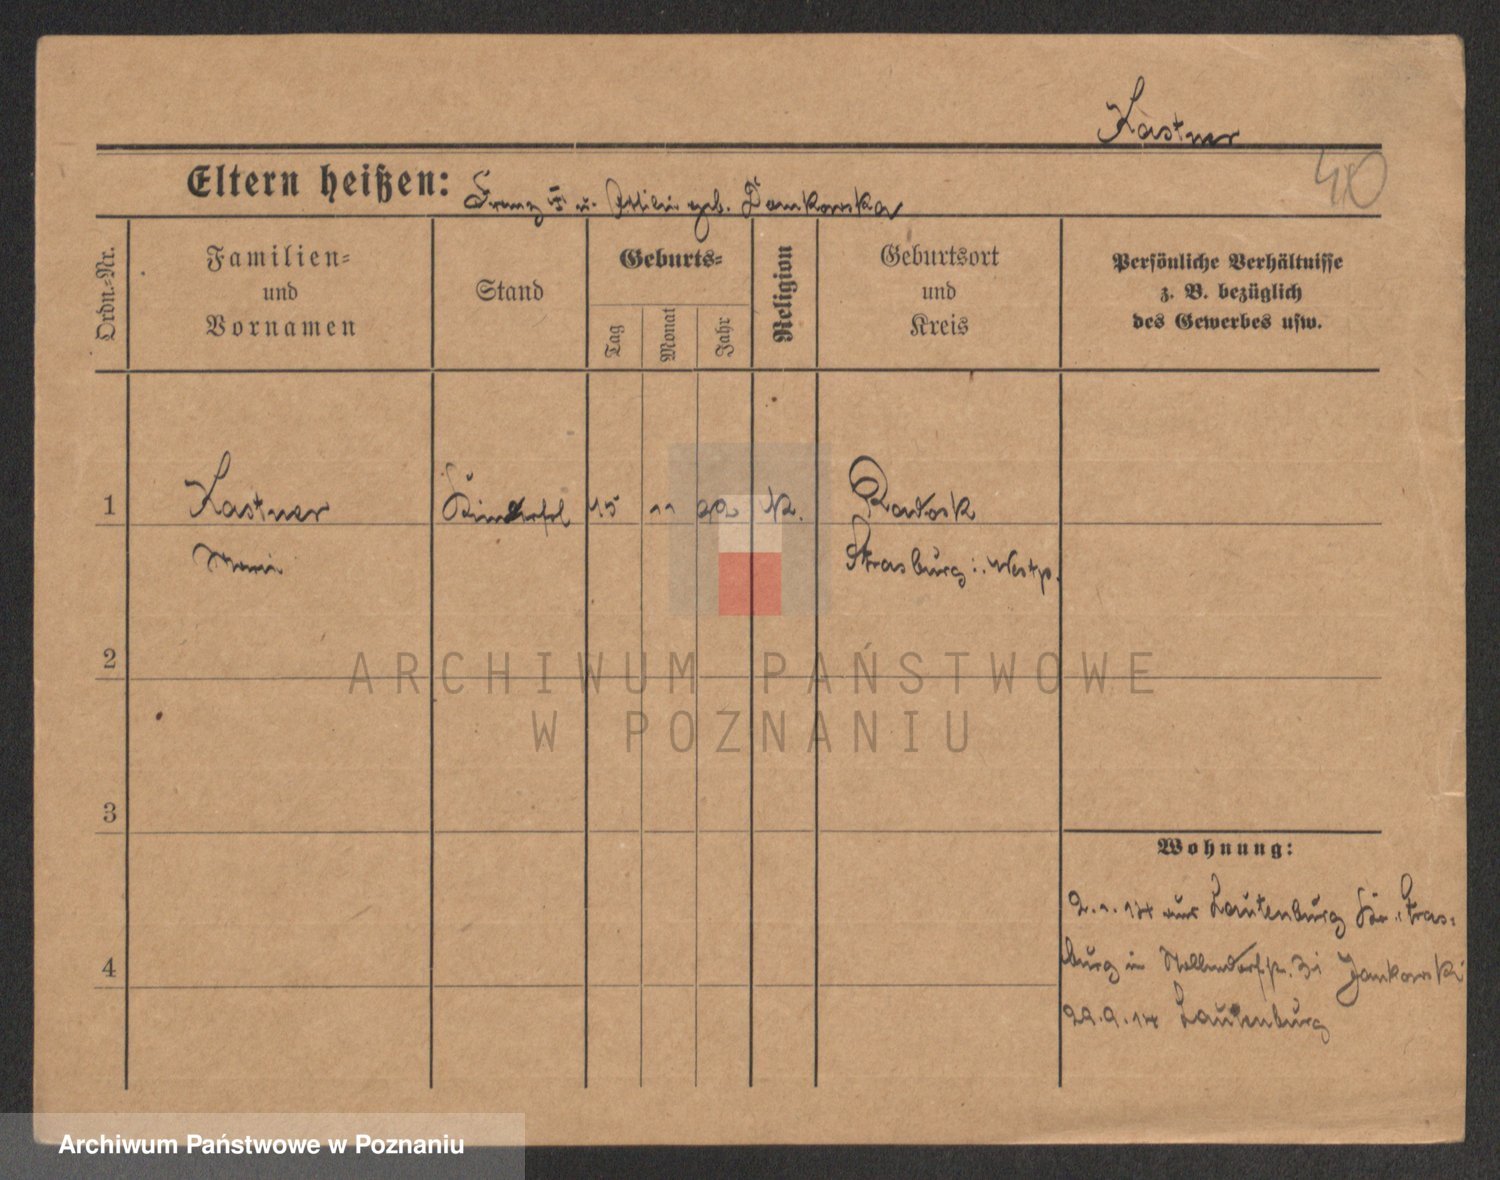 Kastner
40
Eltern heißen: Franz u. Ottilie geb. Jankowska
Ordn.-Nr.
Familien-
und
Vornamen
Stand
Geburts-
Tag
Monat
Jahr
Religion
Geburtsort
und
Kreis
Persönliche Verhältnisse
z. B. bezüglich
des Gewerbes usw.
1
Kastner
15 11 92 K.
Radosk
Strasburg i. Westp.
2
3
4
Wohnung:
2.1.14 aus Lautenburg Kr. Stras-
burg in Jankowski
22.9.14 Lautenburg
ARCHIWUM PAŃSTWOWE
W POZNANIU
Archiwum Państwowe w Poznaniu